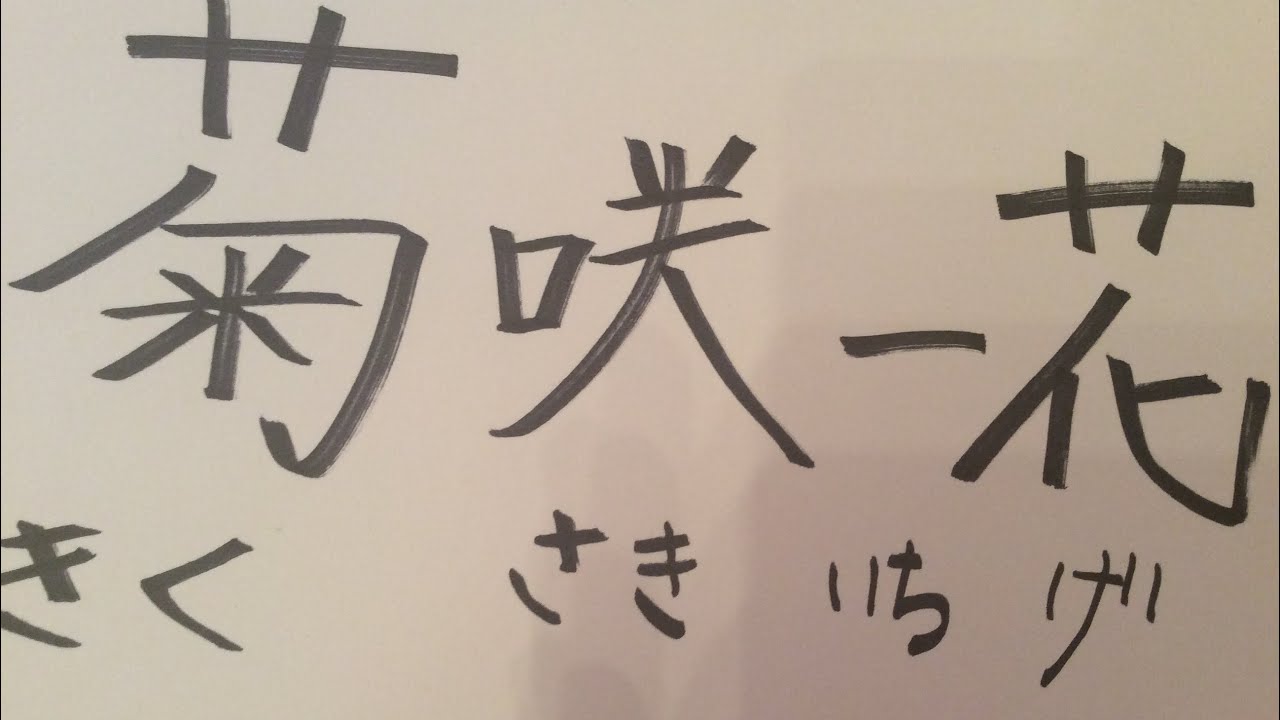 菊咲一花
きく さき いちげ